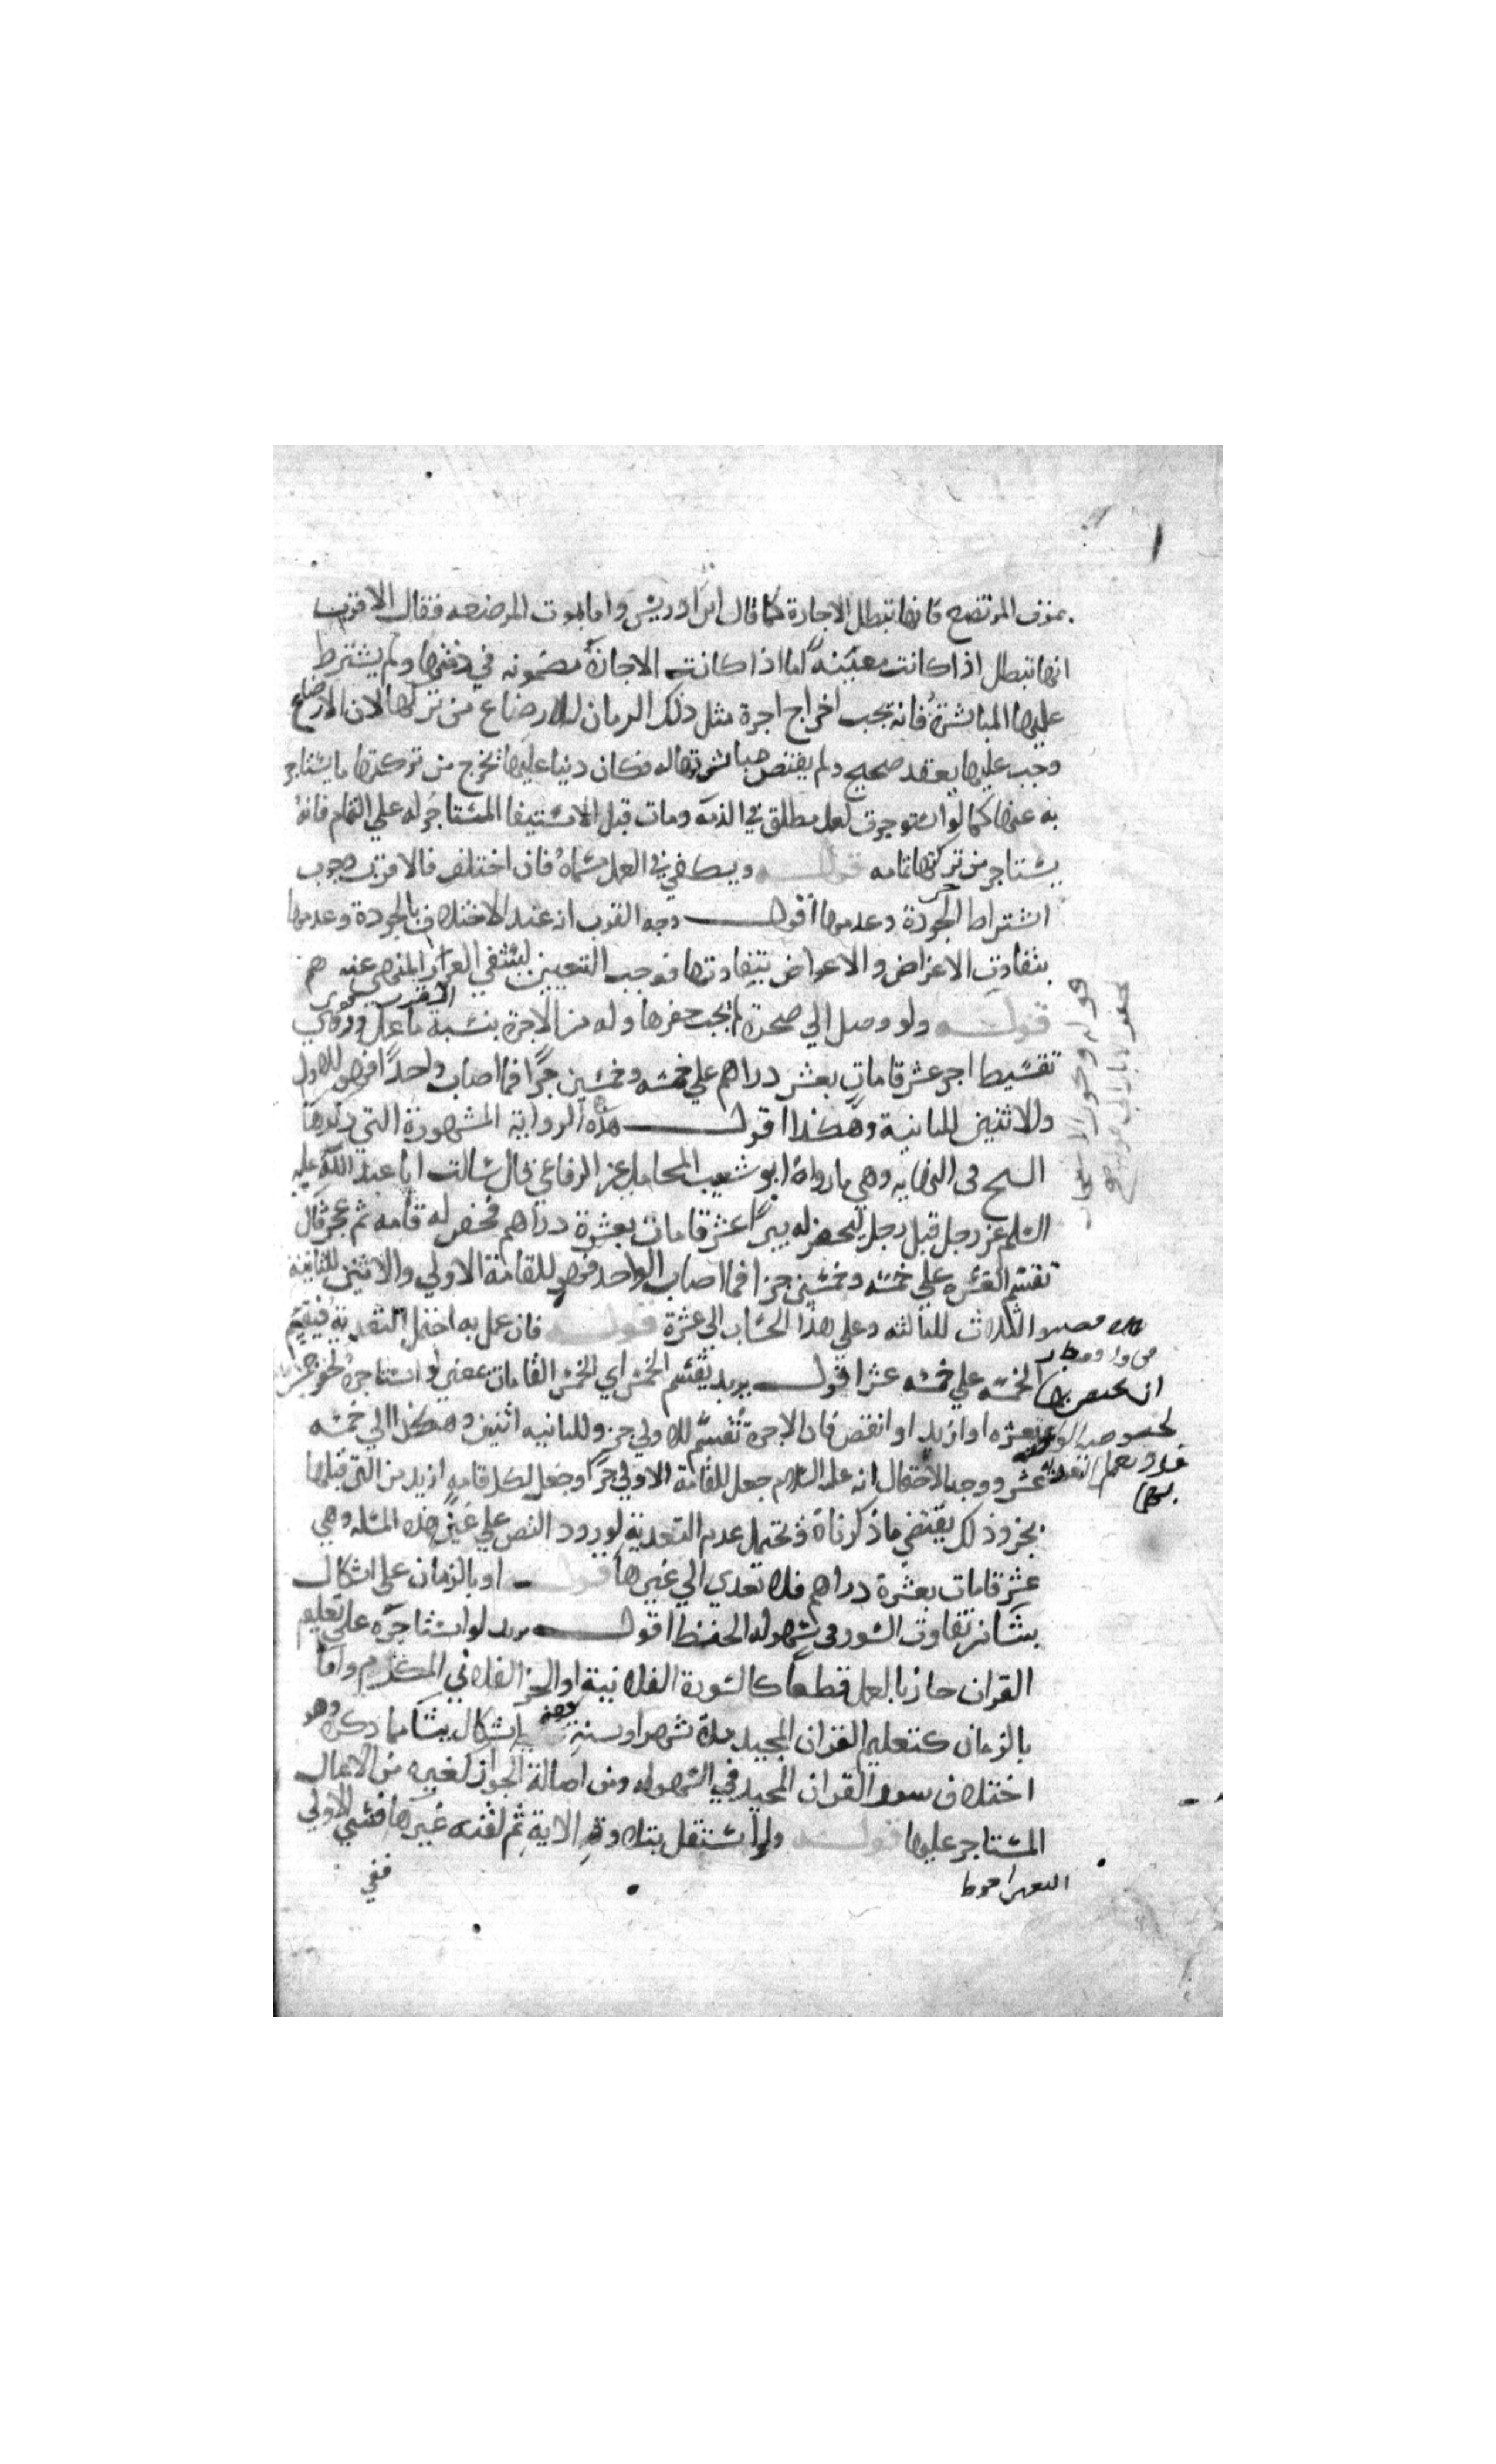 بموت المرتضع فانها تبطل الاجارة كما قال ابن ادريس واما بموت المرضعه فقال الاقرب
انها تبطل اذا كانت معينة اما اذا كانت الاجارة مضمونه في ذمتها ولم يشترط
عليها المباشرة فانه يجب اخراج اجرة مثل ذلك الزمان للارضاع من تركتها لان الارضاع
وجب عليها بعقد صحيح ولم يقتض مباشرتها له فكان دينا عليها تخرج من تركتها ما يستاجر
به عنها كما لو استوجرت لعمل مطلق في الذمة ومات قبل الاستيفا المستاجر له على التمام فانه
يستاجر من تركتها تمامه قوله ويكفي في العمل مسماه فان اختلف فالاقرب وجوب
اشتراط الجودة وعدمها اقول وجه القرب ان عند الاختلاف بالجودة وعدمها
يتفاوت الاغراض والاعواض بتفاوتها فوجب التعيين لينتفي الغرر المنهي عنه
قوله ولو وصل الي صخرة لم يجب حفرها وله من الاجرة بنسبة ما عمل وروي
تقسيط اجر عشر قامات بعشر دراهم علي خمسه وخمسين جزا فما اصاب واحدا فهو للاولى
والاثنين للثانية وهكذا اقول هذه الرواية المشهورة التي ذكرها
الشيخ في النهايه وهي ما رواه ابو شعيب المحاملي عن الرفاعي قال سالت ابا عبد الله عليه
السلم عن رجل قبل رجل ليحفر له بيرا عشر قامات بعشرة دراهم فحفر له قامه ثم عجز قال
تقسم العشره علي خمسه وخمسين جزا فما اصاب الواحد فهو للقامة الاولي والاثنين للثانية
الثلاث للثالثه وعلي هذا الحساب الي عشرة قوله فان عمل به احتمل التعدية فيقسم
الخمسه علي خمسه عشر اقول يريد يقسم الخمس اي الخمس القامات بمعني لو استاجره لحفر خمس
بعشره او ازيد او انقص فان الاجرة تقسم للاولي جز وللثانيه اثنين وهكذا الي خمسه
عشر ووجه الاحتمال انه عليه السلام جعل للقامة الاولي جزا وجعل لكل قامه ازيد من التي قبلها
بجز وذلك يقتضي ما ذكرناه ويحتمل عدم التعدية لورود النص علي عين هذه المسله وهي
عشر قامات بعشرة دراهم فلا تعدي الي غيرها قوله او بالزمان على اشكال
ينشا من تفاوت السور في سهوله الحفظ اقول يريد لو استاجره على تعليم
القران جاز بالعمل قطعا كالسورة الفلانية او الجز الفلاني واما
بالزمان كتعليم القران المجيد مدة شهر او سنة ففيه اشكال ينشا مما ذكره وهو
اختلاف سور القران المجيد في السهوله ومن اصالة الجواز كغيره من الاعمال
المستاجر عليها قوله ولو استقل بتلاوة الاية ثم لقنه غيرها فنسي الاولي
ففي